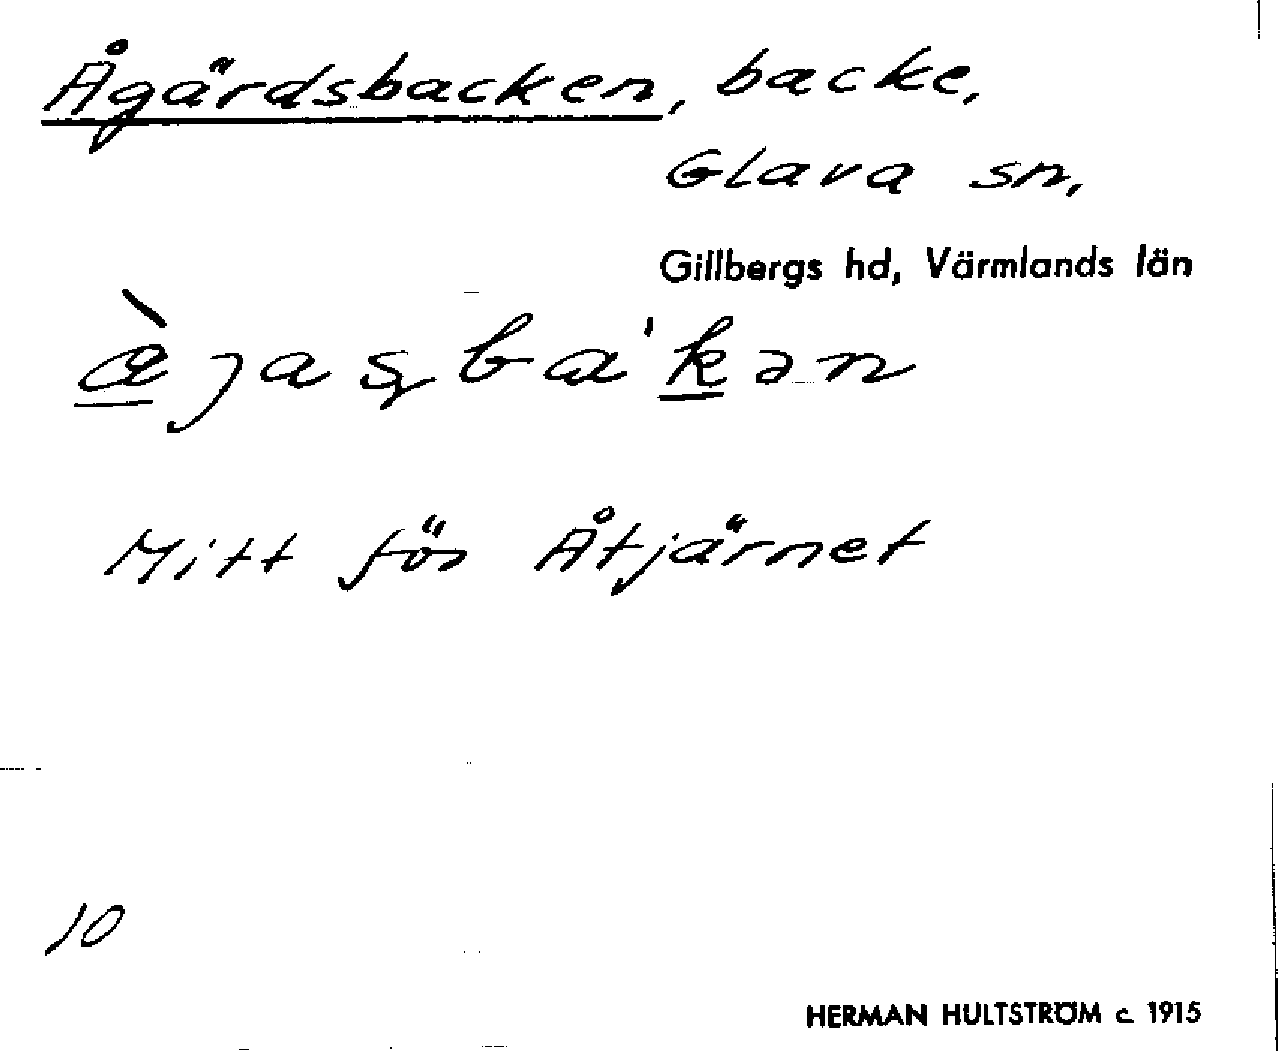 Ågärdsbacken, backe,
Glava sn,
Gillbergs hd, Värmlands län
Mitt för Åtjärnet
10
HERMAN HULTSTRÖM c. 1915